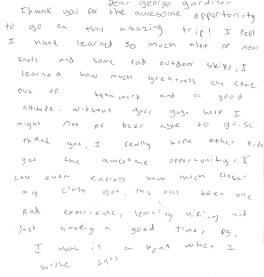 Dear george gardner
Thank you for the awesome opportunity
to go on this amazing trip! I feel
I have learned so much alot of new
and some rad outdoor skills. I
learned how much greatness can come
out of teamwork and a good
attitude. without your guys help I
might not of been able to go. So
thank you, I really hope other kids
get the awesome opportunity. I
can even express how much closer
my class got. this has been one
Rad experience, learning hiking and
just having a good time, ps.
I was in a boat when I